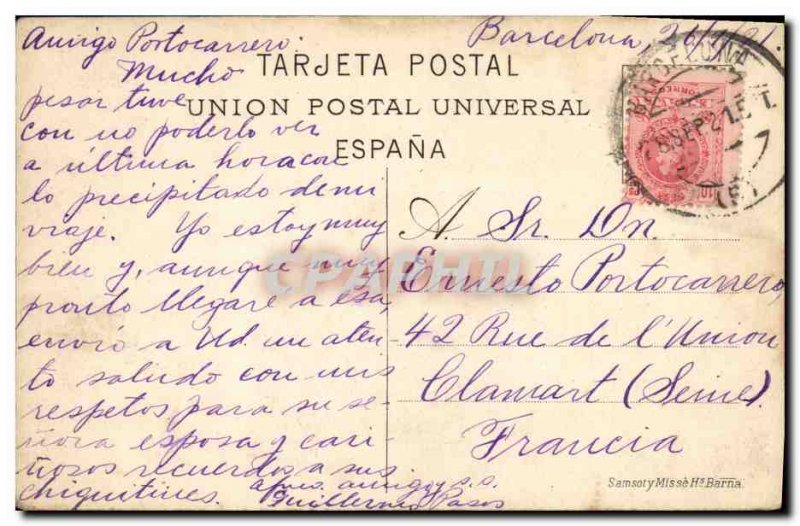 Amigo Portocarrero.
Barcelona, 26/9/21.
TARJETA POSTAL
UNION POSTAL UNIVERSAL
ESPAÑA
Mucho
pesar tuve
con no poderlo ver
a última hora con
lo precipitado de mi
viaje. Yo estoy muy
bien y, aunque muy
pronto llegaré a esa,
envio a Ud. un aten-
to saludo con mis
respetos para su se-
ñora esposa y cari-
ñosos recuerdos a sus
chiquitines.
afmo. amigo y s.s.
Guillermo Pasos
BARCELONA
SEP 21
A Sr. Dn.
Ernesto Portocarrero,
42 Rue de l'Union
Clamart (Seine).
Francia
Samsot y Missé Hs. Barna.
CPAPHIL